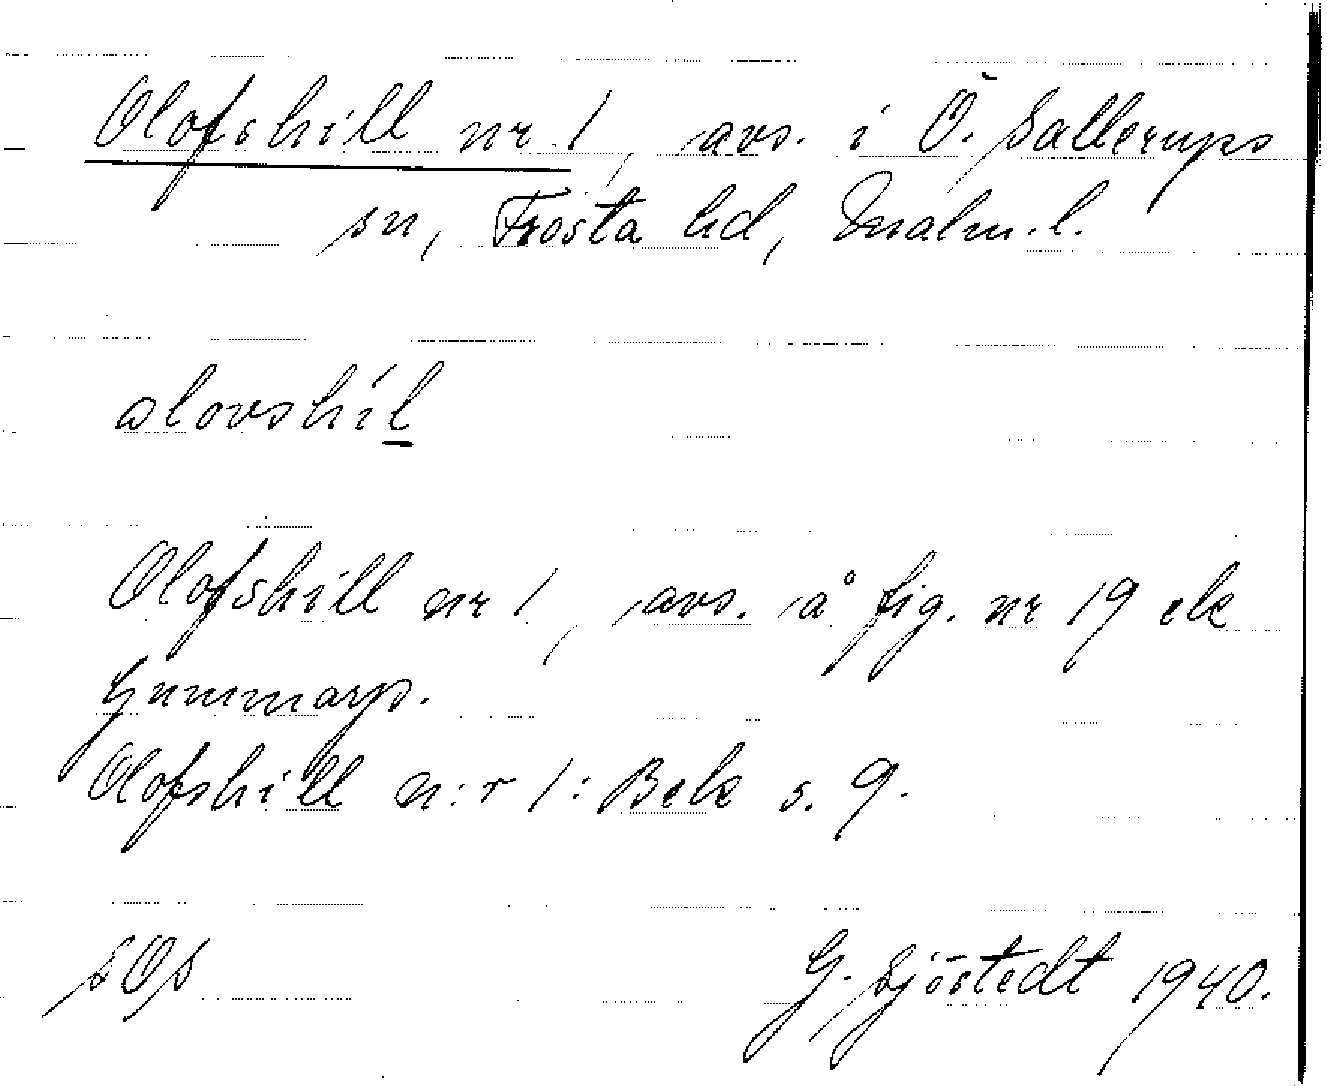 Olofshill nr 1, avs. i Ö. Sallerups
sn, Frosta hd, Malm. l.
olovshíl
Olofshill nr 1, avs. å fig. nr 19 ek
Gummarp.
Olofshill n:r 1: Bek s. 9.
SOS
G. Sjöstedt 1940.